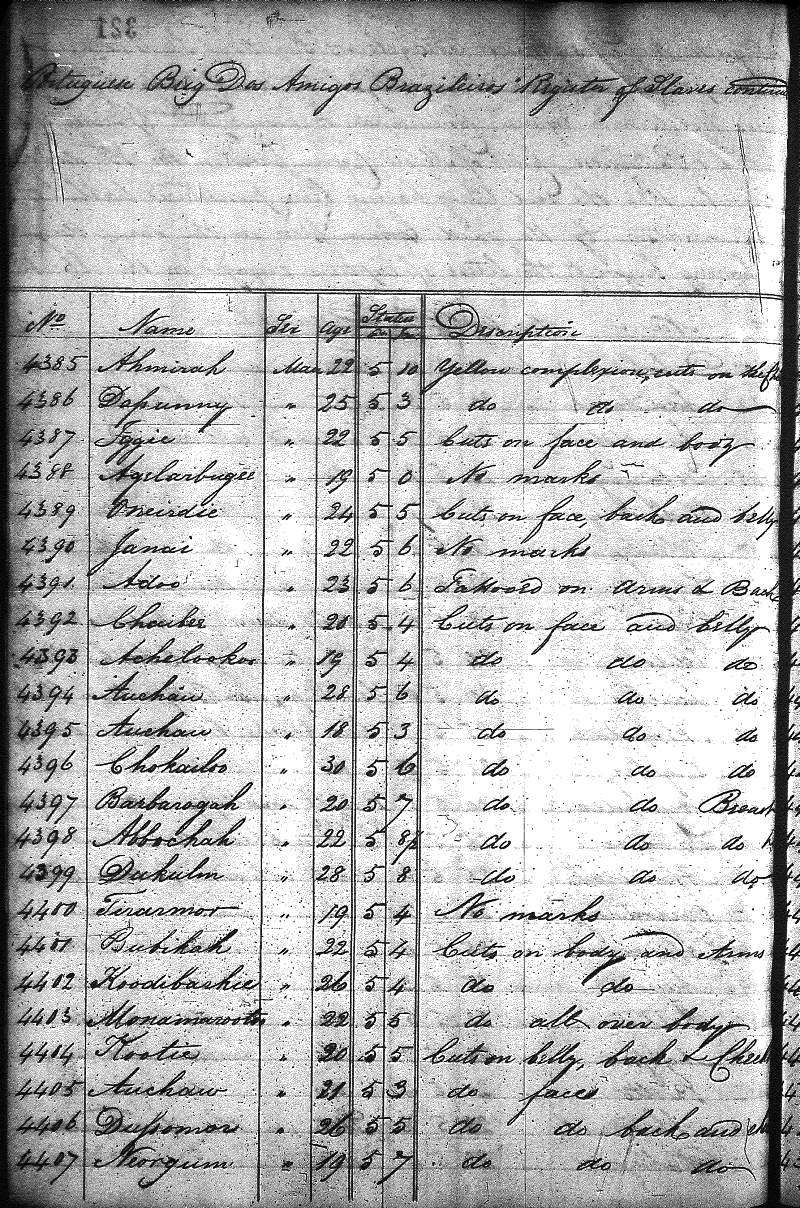 321
Portuguese Brig Dos Amigos Brazileiros Register of Slaves
No Name Sex Age Description
4385 Ahmirah Man 22 5 10 Yellow complexion, cuts on the
4386 Dapunny " 25 5 3 do do do
4387 " 22 5 5 Cuts on face and body
4388 " 19 5 0 No marks
4389 Oneirdie " 24 5 5 Cuts on face, back and belly
4390 Janai " 22 5 6 No marks
4391 Adoo " 23 5 6 on Arms & Back
4392 " 5 4 Cuts on face and belly
4393 " 19 5 4 do do do
4394 Auchau " 28 5 6 do do do
4395 Auchau " 18 5 3 do do do
4396 Chokailoo " 30 5 6 do do do
4397 Barbarogah " 20 5 7 do do Breast
4398 Abbochah " 22 5 do do do
4399 " 28 5 8 do do do
4400 " 19 5 4 No marks
4401 Bubikah " 22 5 4 Cuts on body and Arms
4402 Koodibashie " 26 5 4 do do
4403 " 22 5 5 do all over body
4404 Kootie " 20 5 5 Cuts on belly, back &
4405 Auchaw " 21 5 3 do face
4406 " 26 5 5 do do back and
4407 Neorgum " 19 5 7 do do do